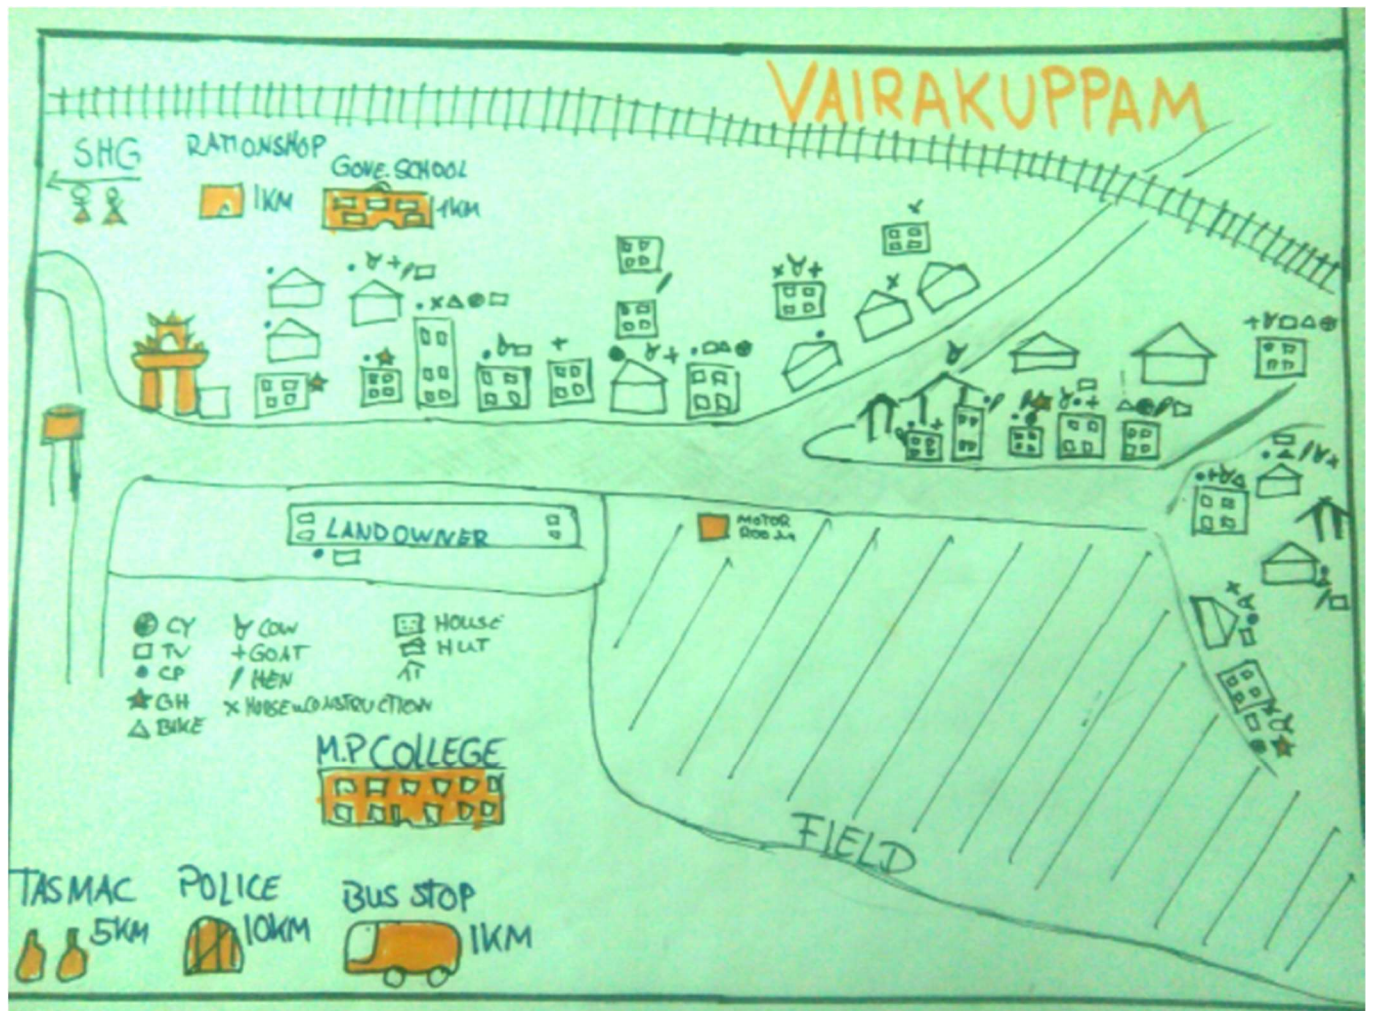 VAIRAKUPPAM
SHG
RATIONSHOP
1KM
GOVE. SCHOOL
1KM
LANDOWNER
MOTOR
ROOM
CY
TV
CP
GH
BIKE
COW
GOAT
HEN
X HOUSE CONSTRUCTION
HOUSE
HUT
M.P COLLEGE
FIELD
TASMAC
5KM
POLICE
10KM
BUS STOP
1KM